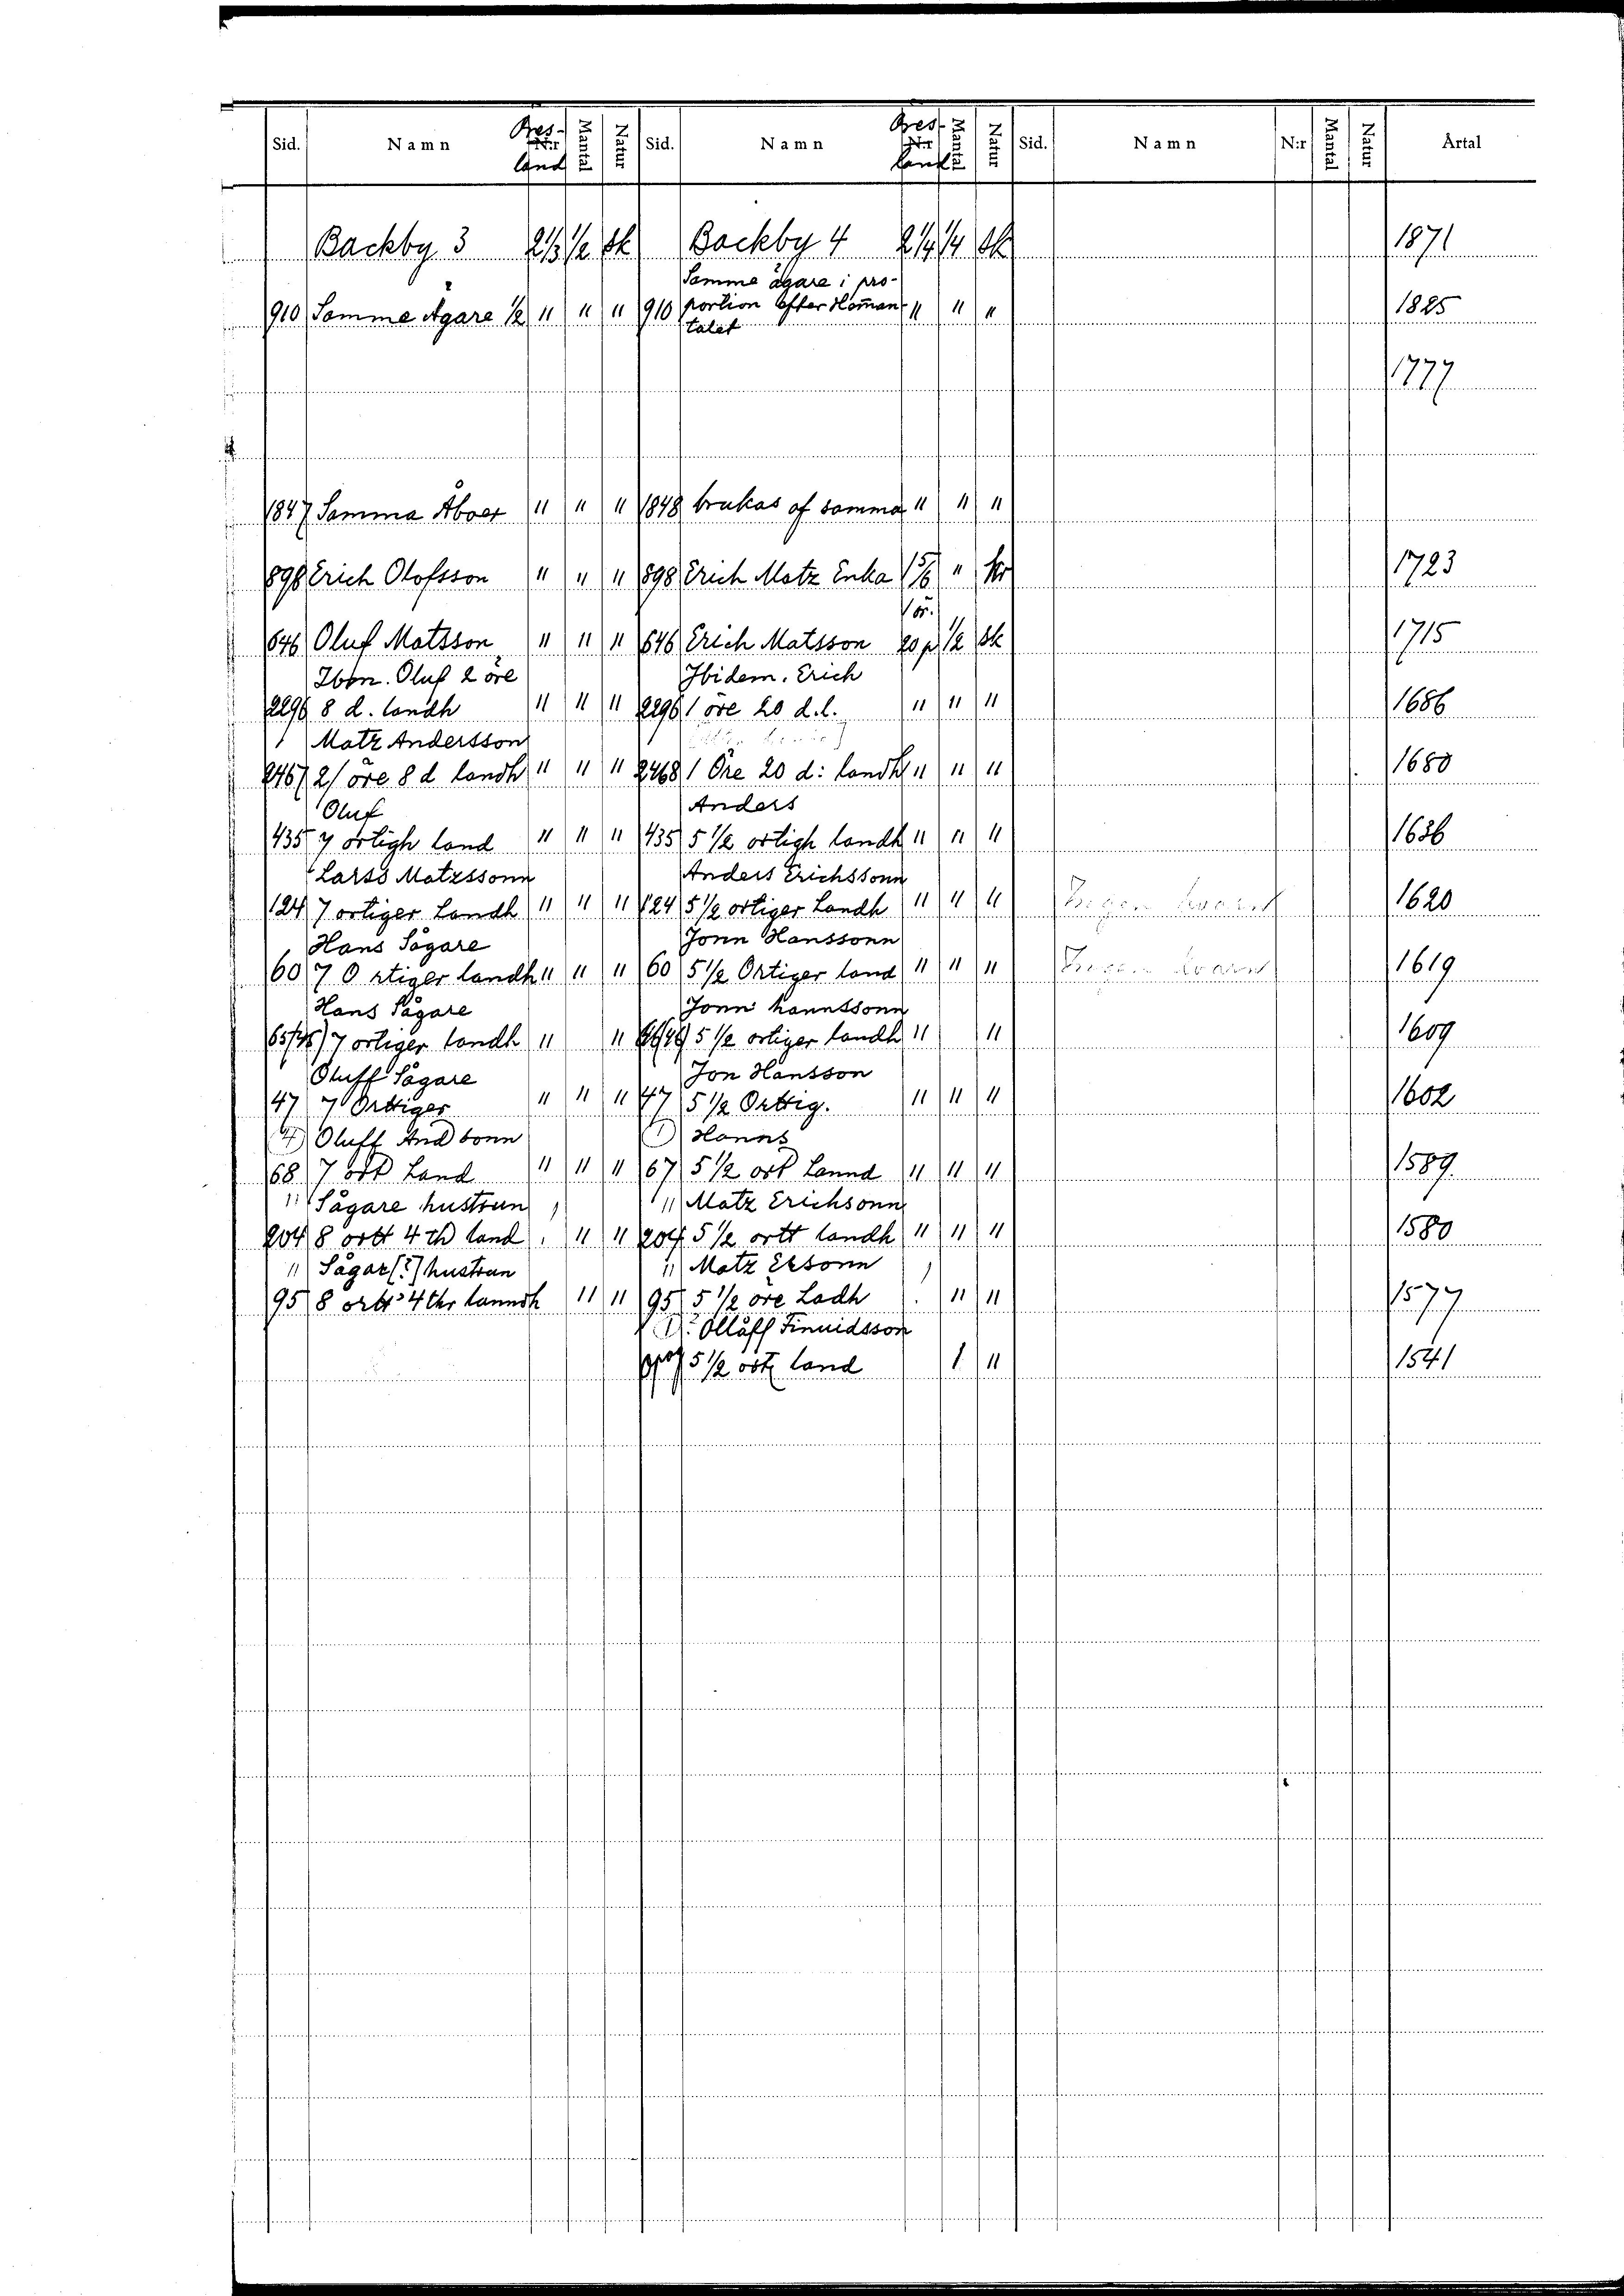 Sid. Namn Bes. N:r land Mantal Natur Sid. Namn Bes. N:r land Mantal Natur Sid. Namn N:r Mantal Natur Årtal
Backby 3 2 1/3 1/2 sk Backby 4 2 1/4 1/4 sk 1871
Samme ägare i pro-
910 Samme Ägare 1/2 " " " 910 portion efter Heman- " " " 1825
talet
1777
1847 Samma Åboer " " " 1848 brukas af samma " " "
898 Erich Olofsson " " " 898 Erich Matz Enka 1 5/6 " kr 1723
1 ör.
646 Oluf Matsson " " " 646 Erich Matsson 20 p 1/2 sk 1715
Iben. Oluf 2 öre Ibidem. Erich
2296 8 d. landh " " " 2296 1 öre 20 d.l. " " " 1686
Matz Andersson
2467 2/ öre 8 d landh " " " 2468 1 Öre 20 d: landh " " " 1680
Oluf Anders
435 7 örtigh land " " " 435 5 1/2 ortigh landh " " " 1636
Larss Matzssonn Anders Erichssonn
124 7 ortiger Landh " " " 124 5 1/2 ortiger Landh " " " 1620
Hans Sågare Jonn Hanssonn
60 7 Ortiger landh " " " 60 5 1/2 Ortiger land " " " 1619
Hans Sågare Jonn hannssonn
65/45 7 ortiger landh " " 5 1/2 ortiger landh " " 1609
Oluff Sågare Jon Hansson
47 7 Orttiger " " " 47 5 1/2 Orttig. " " " 1602
Oluff And sonn Hanns
68 7 ört Land " " " 67 5 1/2 ort Lannd " " " 1589
" Sågare hustrun " Matz Erichsonn
204 8 ortt 4 th land " " 204 5 1/2 ortt landh " " " 1580
" Sågar(?) hustrun " Matz Ersonn
95 8 ortt 4 thr lanndh " " 95 5 1/2 öre Ladh " " 1577
Olläff Finuidsson
5 1/2 ört land 1 " 1541